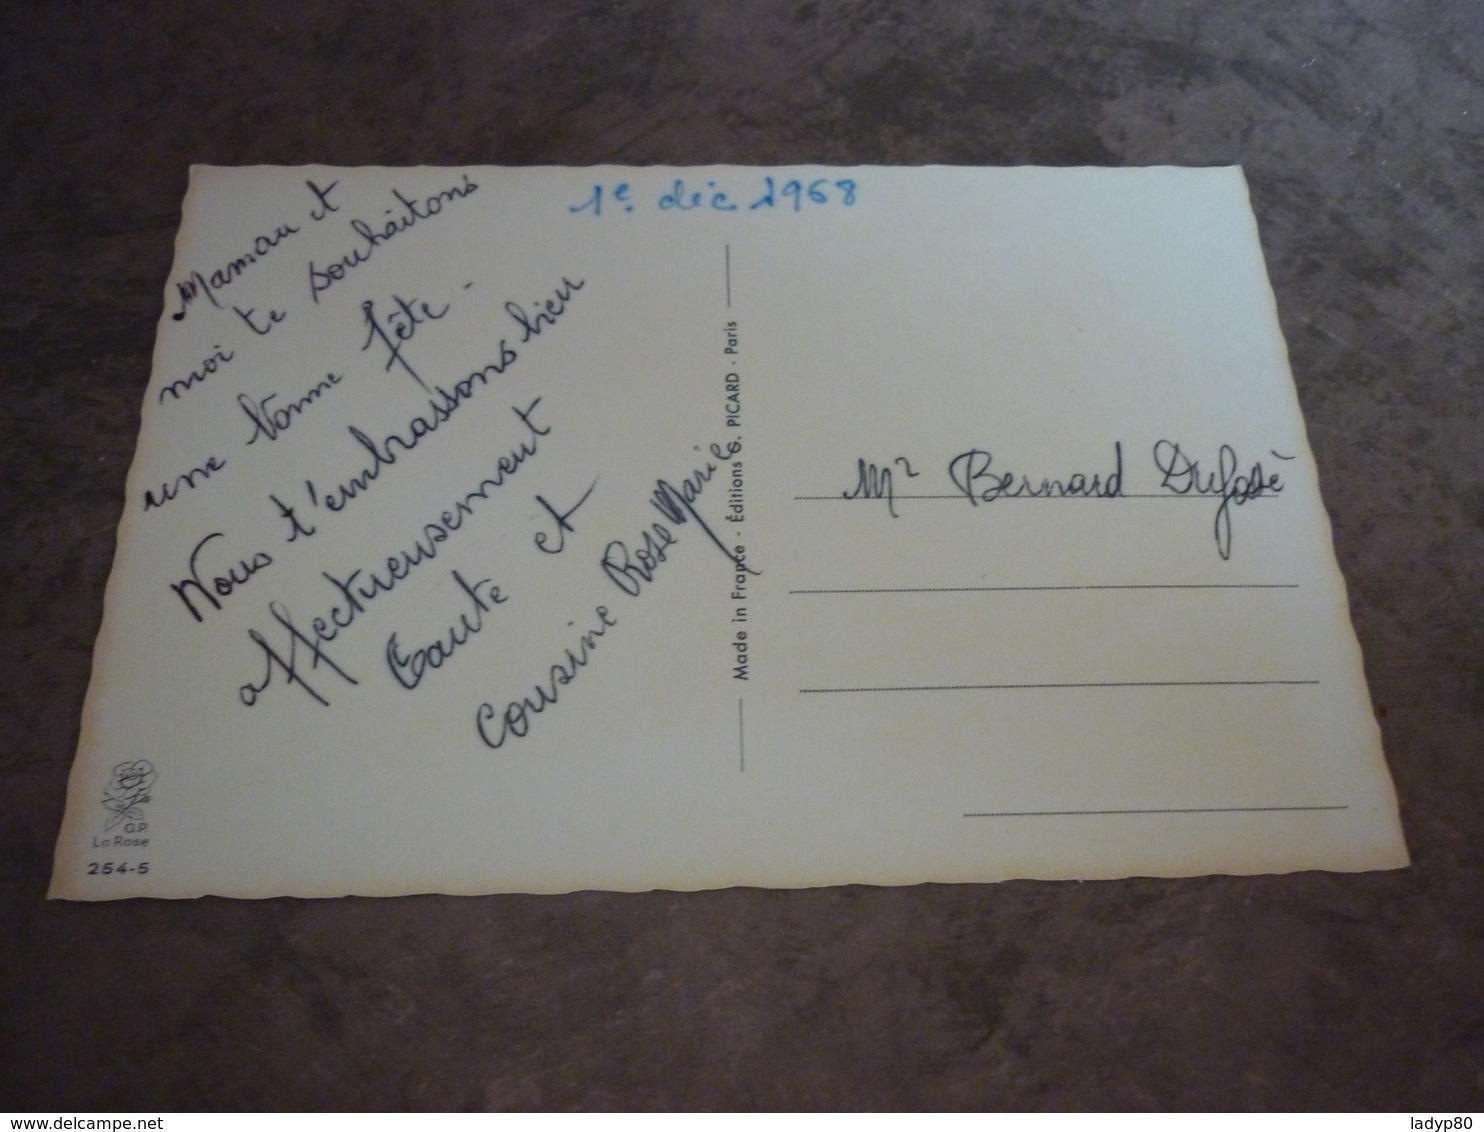 1e. déc 1968
Maman et
moi te souhaitons
une bonne fête -
Nous t'embrassons bien
affectueusement
Tante et
cousine Rose Marie
Made in France - Éditions G. PICARD - Paris
Mr Bernard Dufossè
G.P.
La Rose
254-5
www.delcampe.net
ladyp80